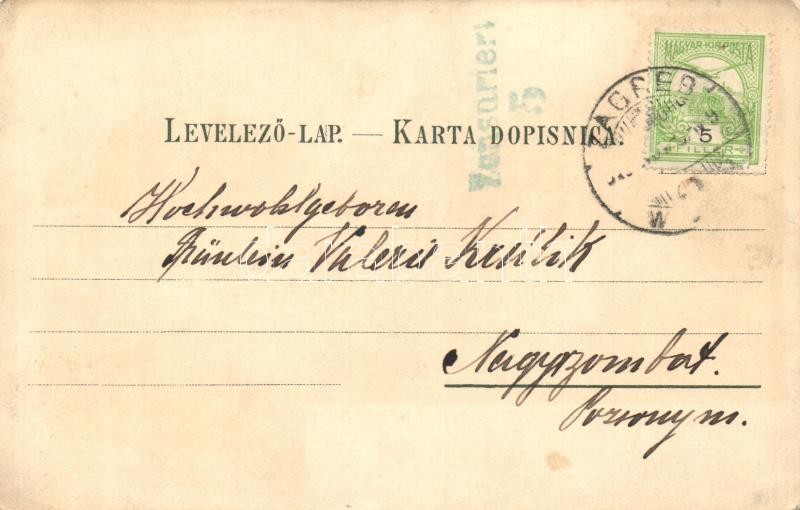 Zensuriert
5
MAGYAR KIR. POSTA
5
FILLÉR
ZAGREB
LEVELEZŐ-LAP. — KARTA DOPISNICA.
Hochwohlgeboren
Fräulein Valerie
Nagyszombat.
Pozsony m.